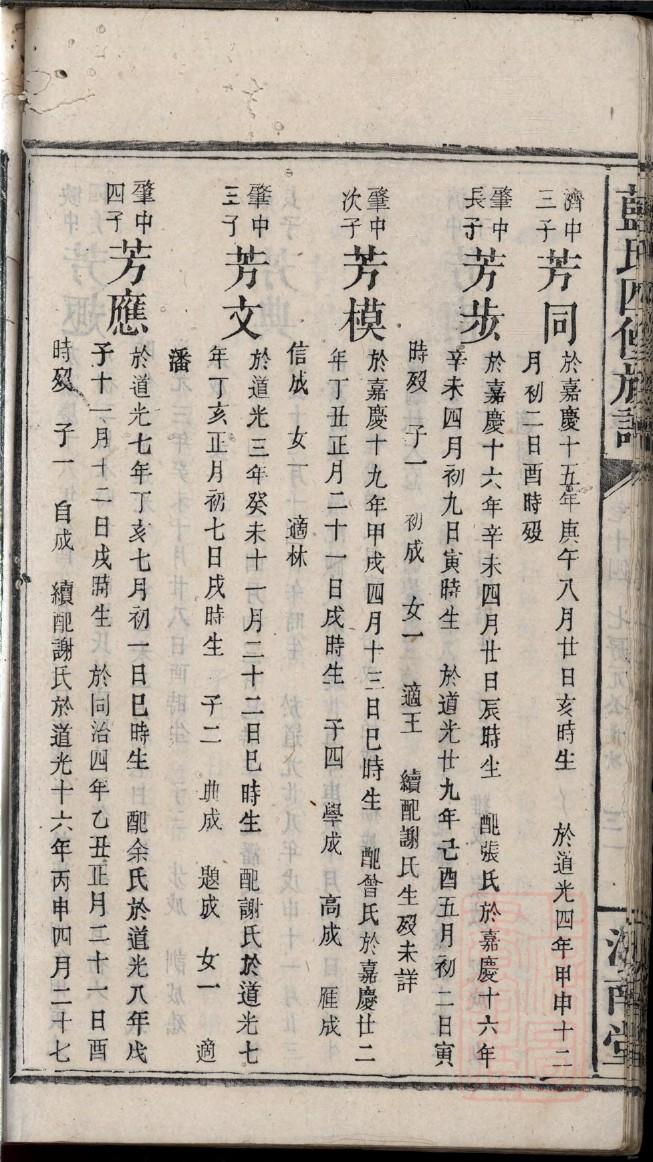 藍氏四修族譜
汝南堂
濟中三子 芳同 於嘉慶十五年庚午八月廿日亥時生 於道光四年甲申十二
月初二日酉時殁
肇中長子 芳步 於嘉慶十六年辛未四月廿日辰時生 配張氏於嘉慶十六年
辛未四月初九日寅時生 於道光廿九年己酉五月初二日寅
時殁 子一 初成 女一 適王 續配謝氏生殁未詳
肇中次子 芳模 於嘉慶十九年甲戌四月十三日巳時生 配曾氏於嘉慶廿二
年丁丑正月二十一日戌時生 子四 學成 高成 雁成
信成 女一 適林
肇中三子 芳文 於道光三年癸未十一月二十二日巳時生 配謝氏於道光七
年丁亥正月初七日戌時生 子二 典成 題成 女一 適
潘
肇中四子 芳應 於道光七年丁亥七月初一日巳時生 配余氏於道光八年戊
子十一月十二日戌時生 於同治四年乙丑正月二十六日酉
時殁 子一 自成 續配謝氏於道光十六年丙申四月二十七